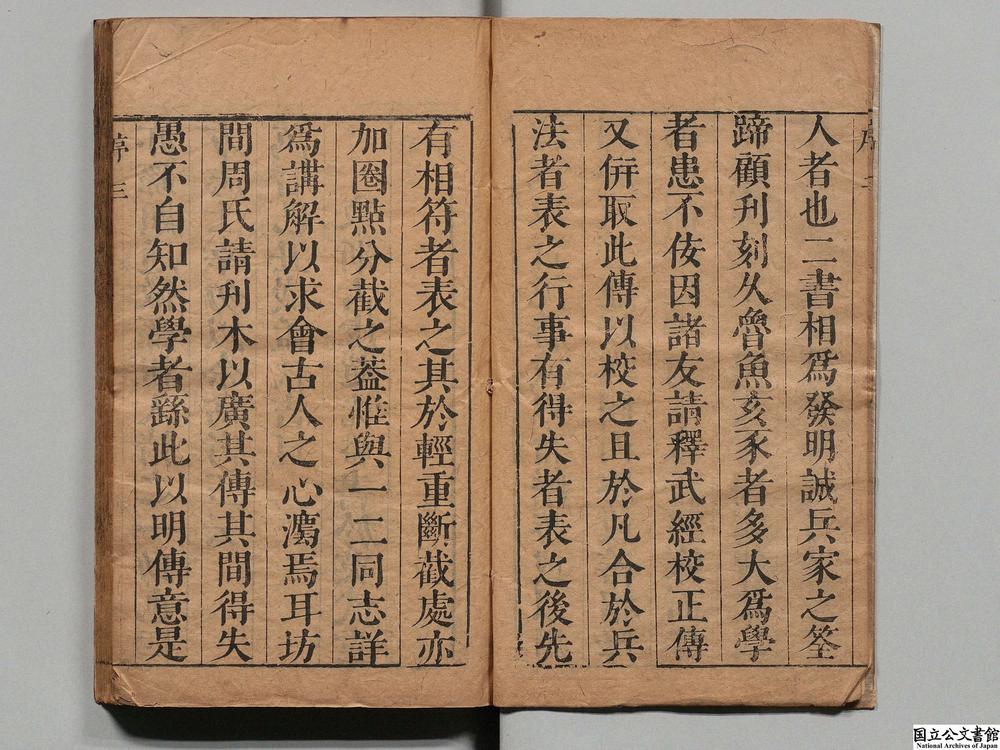 人者也二書相爲發明誠兵家之筌
蹄顧刋刻久魯魚亥豕者多大爲學
者患不侫因諸友請釋武經校正傳
又併取此傳以校之且於凡合於兵
法者表之行事有得失者表之後先
有相符者表之其於輕重斷截處亦
加圈點分截之葢惟與一二同志詳
爲講解以求會古人之心瀉焉耳坊
間周氏請刋木以廣其傳其間得失
愚不自知然學者繇此以明傳意是
序三
国立公文書館
National Archives of Japan